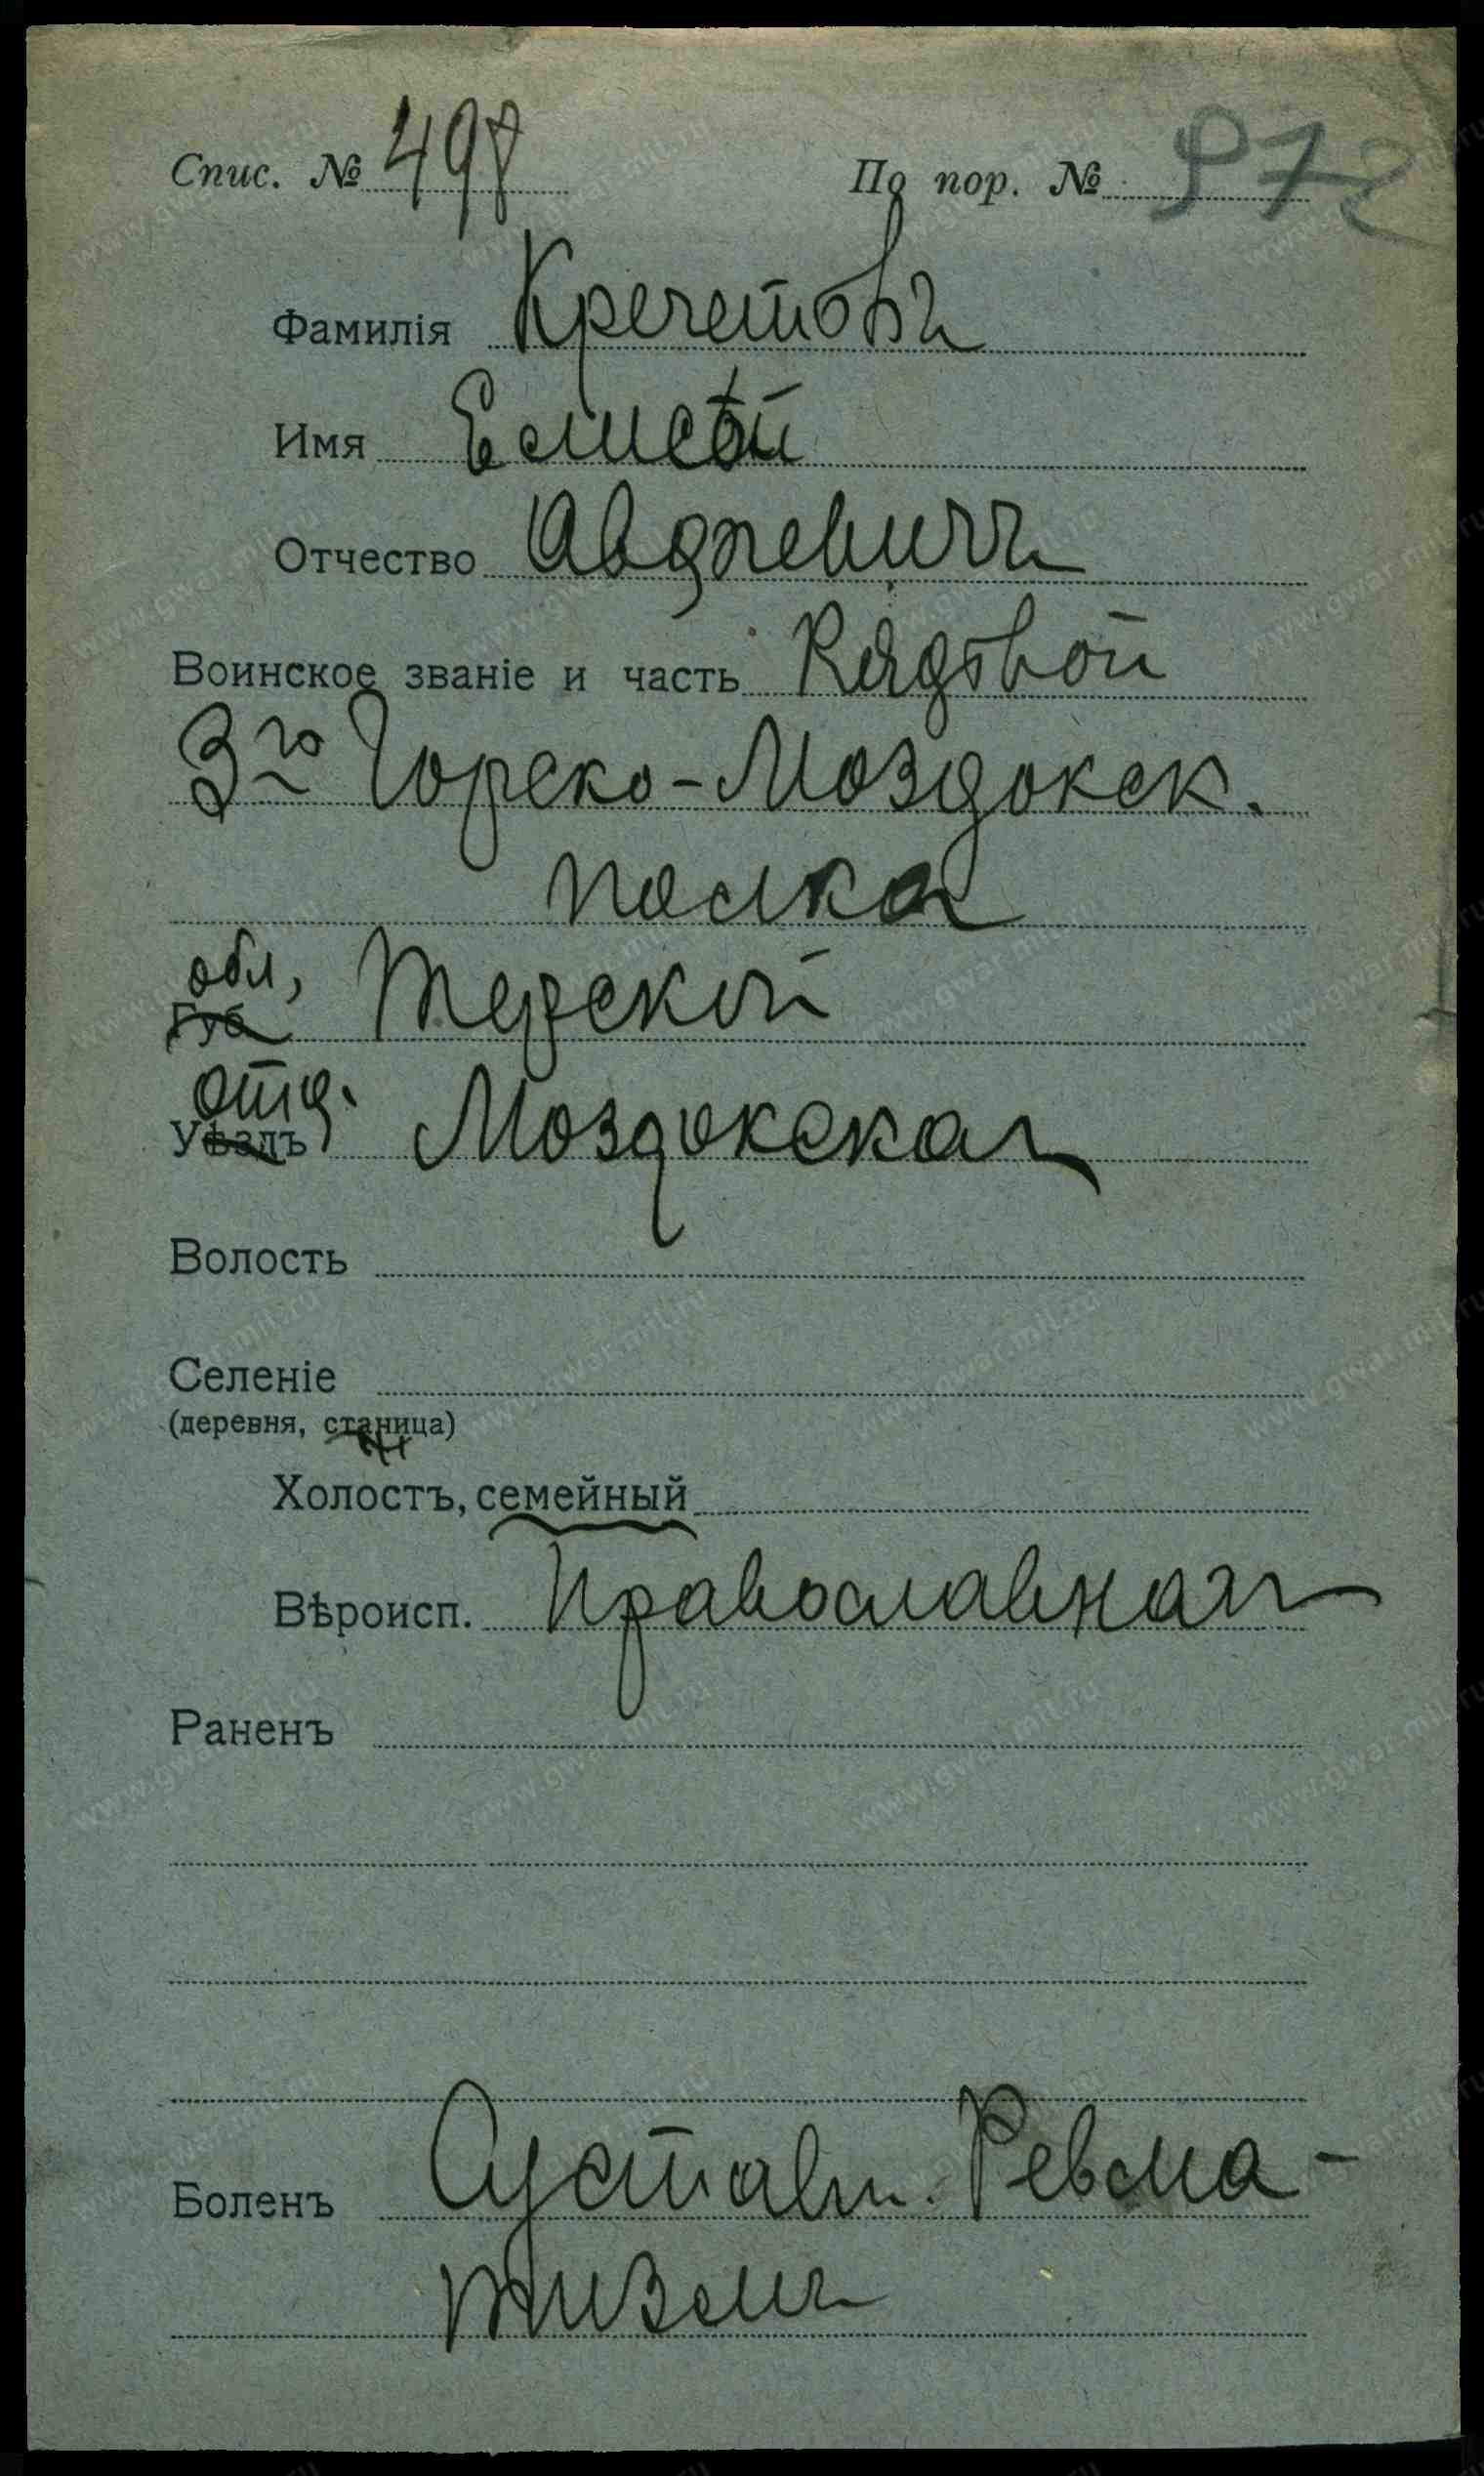 Спис. № 498 По пор. № 972
Фамилія Кречетовъ
Имя Елисѣй
Отчество Авдѣевичъ
Воинское званіе и часть Рядовой
3го Горско-Моздокск.
полка
обл,
Губ. Терской
отд.
Уѣздъ Моздокская
Волость
Селеніе
(деревня, станица)
Холостъ, семейный
Вѣроисп. Православная
Раненъ
Боленъ Суставн. Ревма-
тизмъ